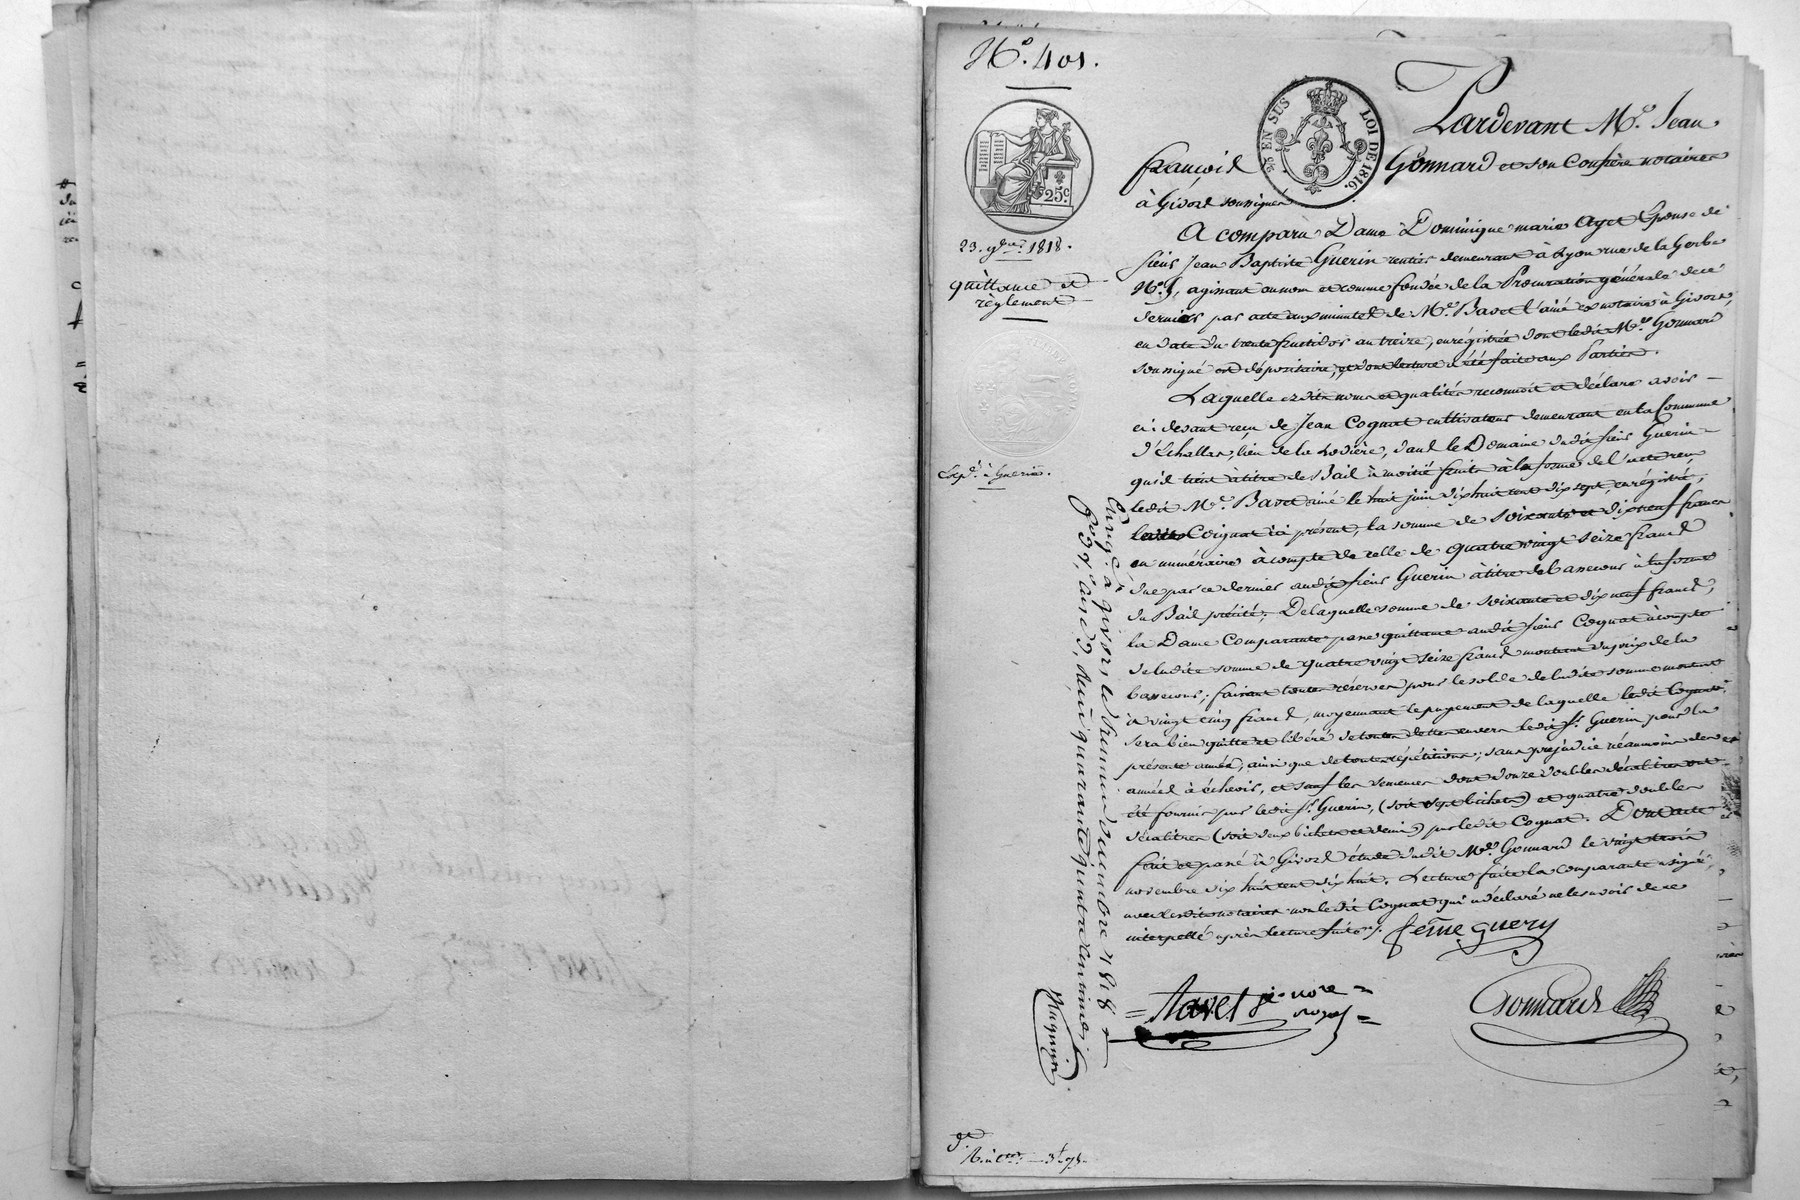 N.° 401.
25 EN SUS LOI DE 1816.
25.c
23. 9bre. 1818.
quittance et
règlement
Exp.é à Guerin.
Pardevant M.e Jean
françois Gonnard et son Confrère notaires
à Givors soussignés
A comparu Dame Dominique marie Ayet Epouse de
sieur Jean Baptiste Guerin rentier demeurant à Lyon rue de la Gerbe
N.°, agissant au nom et comme fondée de la Procuration générale de ce
dernier par acte aux minutes de M.e Bavet l'ainé ex notaire à Givors,
en date du trente fructidor an treize, enrégistrée dont ledit M.e Gonnard
soussigné est dépositaire, et dont lecture a été faite aux Parties.
Laquelle ezdits noms et qualités reconnoit et déclare avoir
ci-devant reçu de Jean Cognat cultivateur demeurant en la Commune
d'Echallas, lieu de la Rodière, dans le Domaine dudit sieur Guerin
qu'il tient à titre de Bail à moitié fruits à la forme de l'acte reçu
ledit M.e Bavet ainé le huit juin dix huit cent dix sept, enrégistré,
Coignat ici présent, la somme de soixante et dix neuf francs
en numéraire à compte de celle de quatre vingt seize francs
due par ce dernier audit sieur Guerin à titre de bassecour à la forme
du Bail précité; De laquelle somme de soixante et dix neuf francs,
la Dame Comparante passe quittance audit sieur Cognat à compte
de ladite somme de quatre vingt seize francs montant du prix de la
bassecour; faisant toutes réserves pour le solde de ladite somme montant
à vingt cinq francs, moyennant le payement de laquelle ledit Cognat
sera bien quitte et libéré de toutes dettes envers ledit Sr. Guerin pour la
présente année, ainsi que de toutes répétitions; sans préjudice néanmoins des
années à échoir, et sauf les semences dont douze doubles décalitres ont
été fournis par ledit Sr. Guerin, (soit sept bichets) et quatre doubles
décalitres (soit deux bichets et demi) par ledit Cognat. Dont acte
fait et passé à Givors étude dudit M.e Gonnard le vingt trois
novembre dix huit cent dix huit. Lecture faite la comparante a signé,
avec lesdits notaires non ledit Cognat qui a déclaré ne le savoir de ce
interpellé après lecture faite.
feme guery
Bavet né. nore
royal
Gonnard
Enregé. à givors le premier decembre 1818
deux quarante quatre centimes